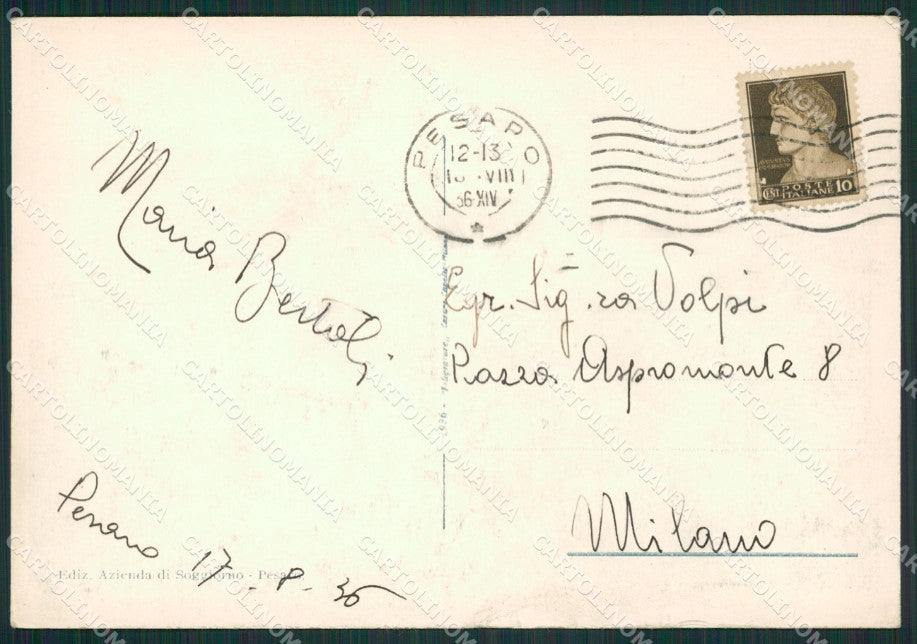 PESARO
12-13
VIII
36 XIV
POSTE
ITALIANE
CENT 10
Maria Bertoli
Egr. Sig.ra Volpi
Piazza Aspromonte 8
Milano
Pesaro 17-8-36
Ediz. Azienda di Soggiorno - Pesaro
CARTOLINOMANIA